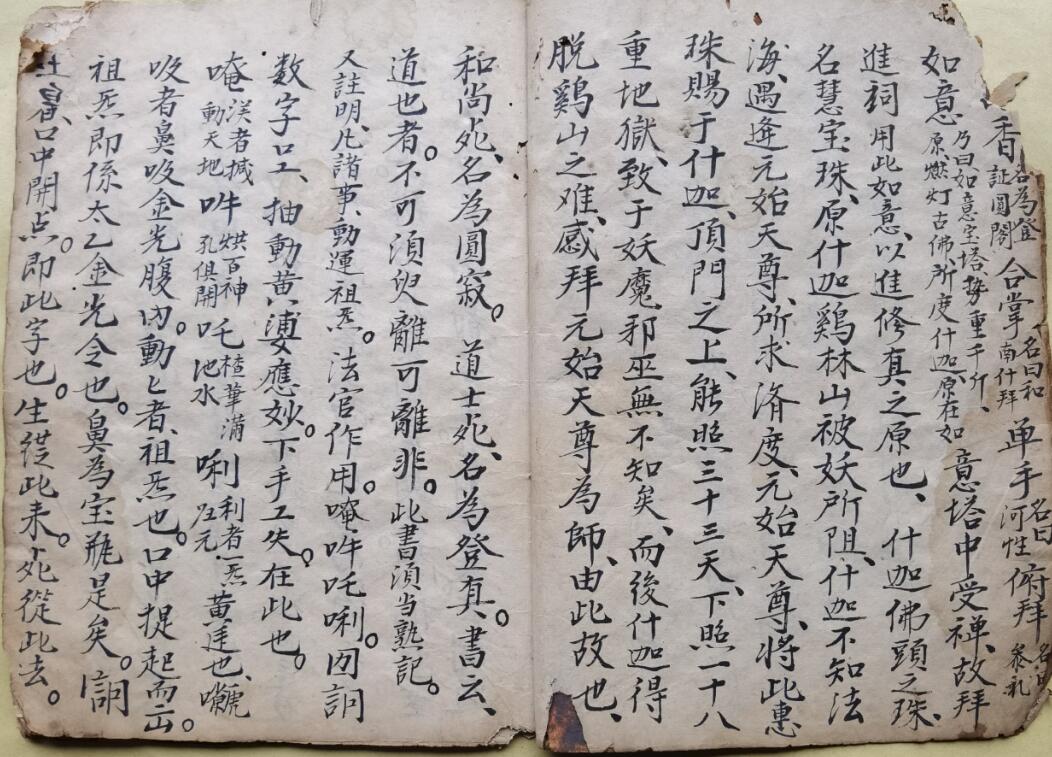 香 名為登 証圓閣 合掌 名曰和 南什拜 单手 名曰 河性 俯拜 名曰 参礼
如意 乃曰如意宝塔势重千斤、 原燃灯古佛所度什迦、原在如 意塔中受禅、故拜
進祠用此如意、以進修真之原也、什迦佛頭之珠、
名慧宝珠、原什迦鷄林山被妖所阻、什迦不知法
海、遇逄元始天尊、所求済度、元始天尊、将此惠
珠賜于什迦、頂門之上、能照三十三天、下照一十八
重地獄、致于妖魔邪巫無不知矣、而後什迦得
脱鷄山之难、感拜元始天尊為師、由此故也、
和尚死、名為圓寂。道士死、名為登真。書云、
道也者。不可須臾離可離非。此書須当熟記。
又註明、凡諸事、動運祖炁。法官作用。唵吽吒唎。因詞
数字口工、抽動黄婆應妙。下手工失。在此也。
唵 渼者撼 動天地 吽 烘百神 孔俱開 吒 楂華滿 池水 唎 利者一炁 在元 黄庭也、
吸者鼻吸金光腹内。動々者、祖炁也。口中提起而出。
祖炁即係太乙金光令也。鼻為宝瓶是矣。詞
鼻口中開点。即此字也。生從此来。死從此去。